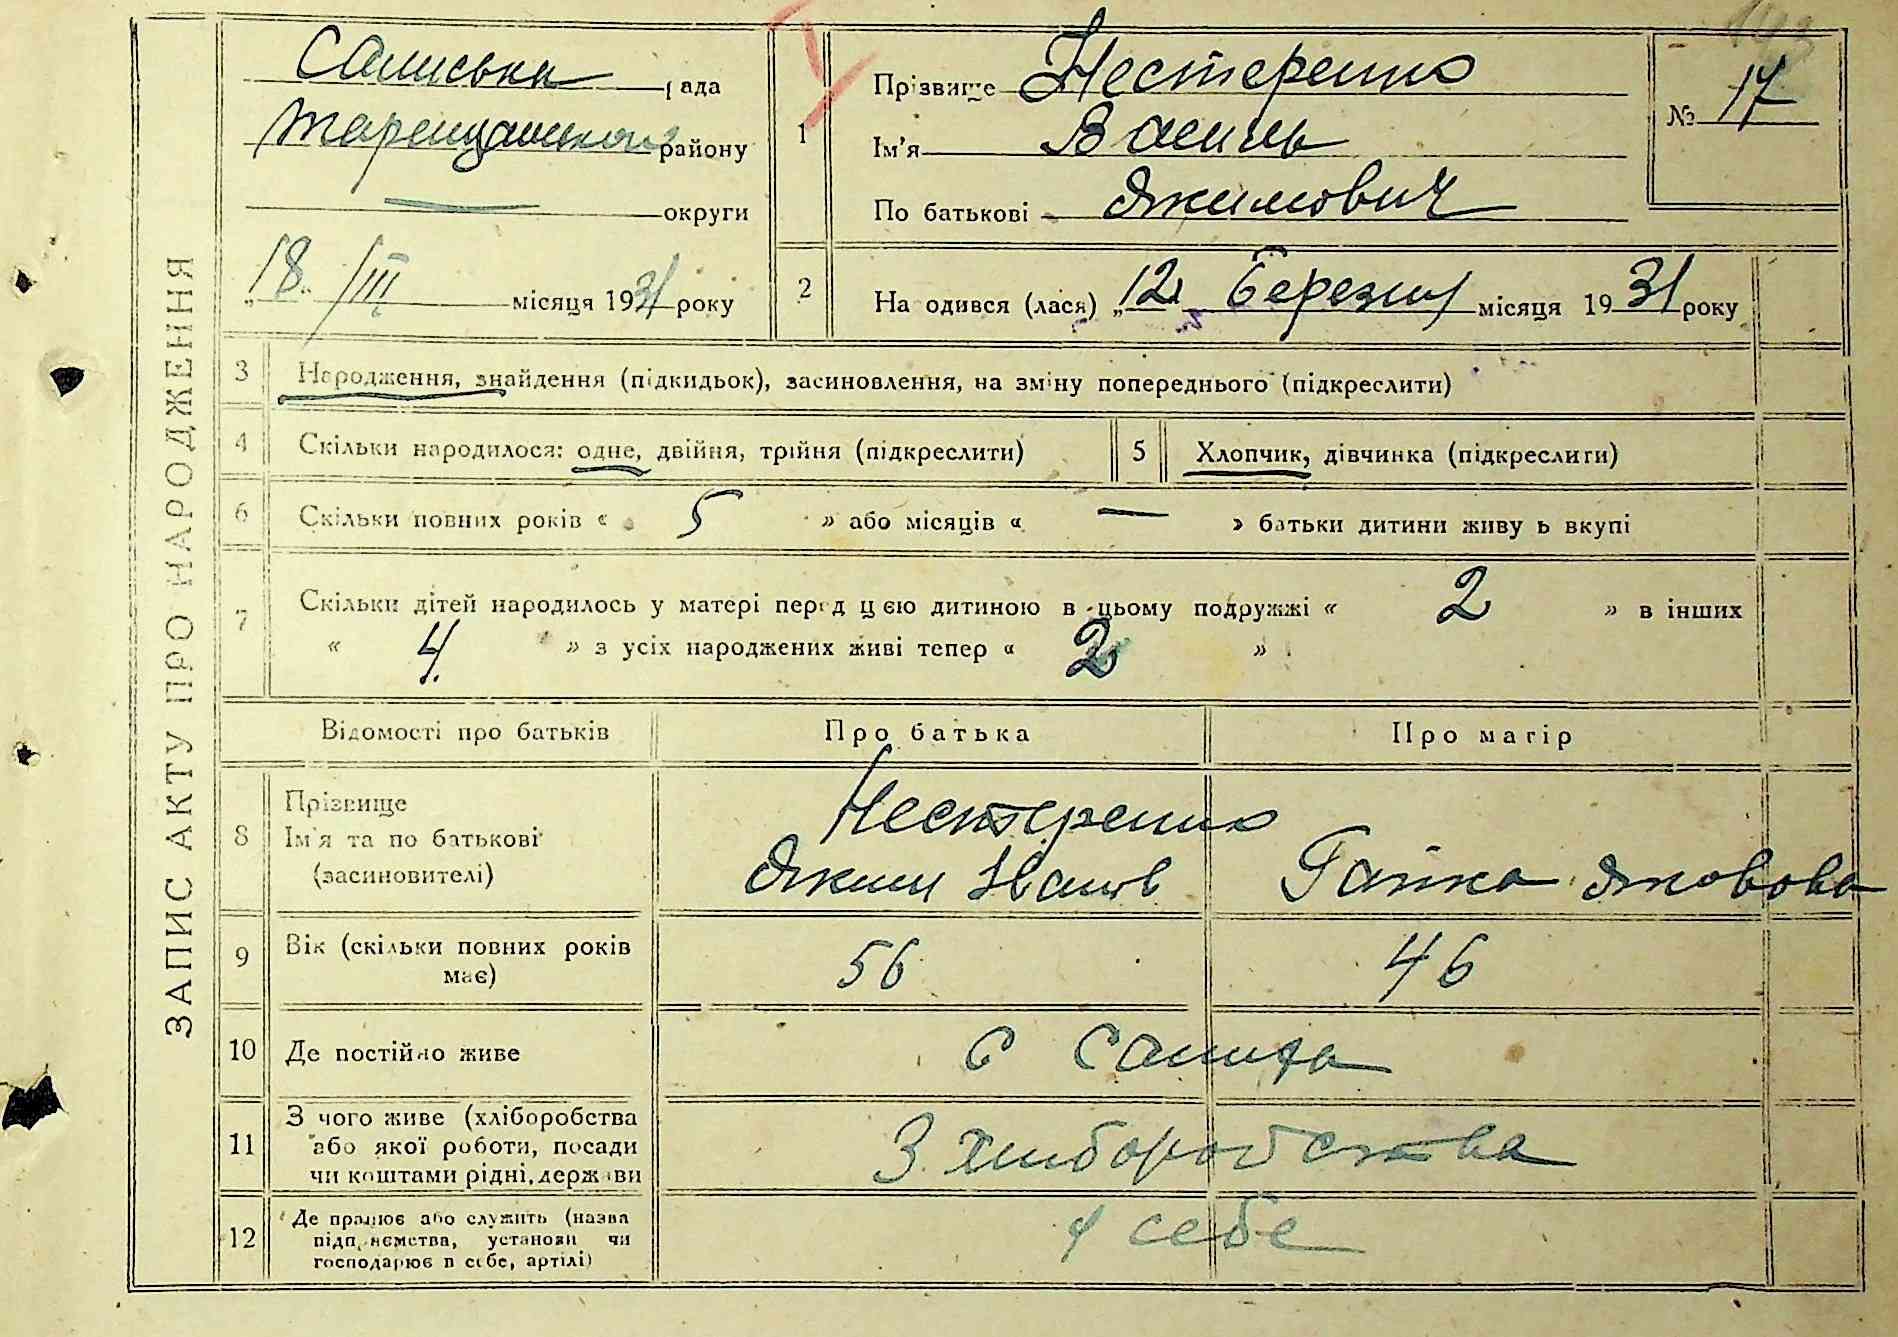 ЗАПИС АКТУ ПРО НАРОДЖЕННЯ
Салиська рада
Таращанського району
— округи
"18" /III місяця 1931 року
1
Прізвище Нестеренко
Ім'я Василь
По батькові Якимович
№ 17
2
На одився (лася) "12" березня місяця 1931 року
3 Народження, знайдення (підкидьок), засиновлення, на зміну попереднього (підкреслити)
4 Скільки народилося: одне, двійня, трійня (підкреслити)
5 Хлопчик, дівчинка (підкреслити)
6 Скільки повних років « 5 » або місяців « — » батьки дитини живу ь вкупі
7 Скільки дітей народилось у матері перед цією дитиною в цьому подружжі « 2 » в інших
« 4. » з усіх народжених живі тепер « 2 »
Відомості про батьків Про батька Про матір
8 Прізвище
Ім'я та по батькові
(засиновителі)
Нестеренко
Яким Іванов
Гапка Яковова
9 Вік (скільки повних років
має)
56 46
10 Де постійно живе
с
11 З чого живе (хліборобства
або якої роботи, посади
чи коштами рідні, держави
З хліборобства
12 Де працює або служить (назва
підприємства, установи чи
господарює в себе, артілі)
у себе